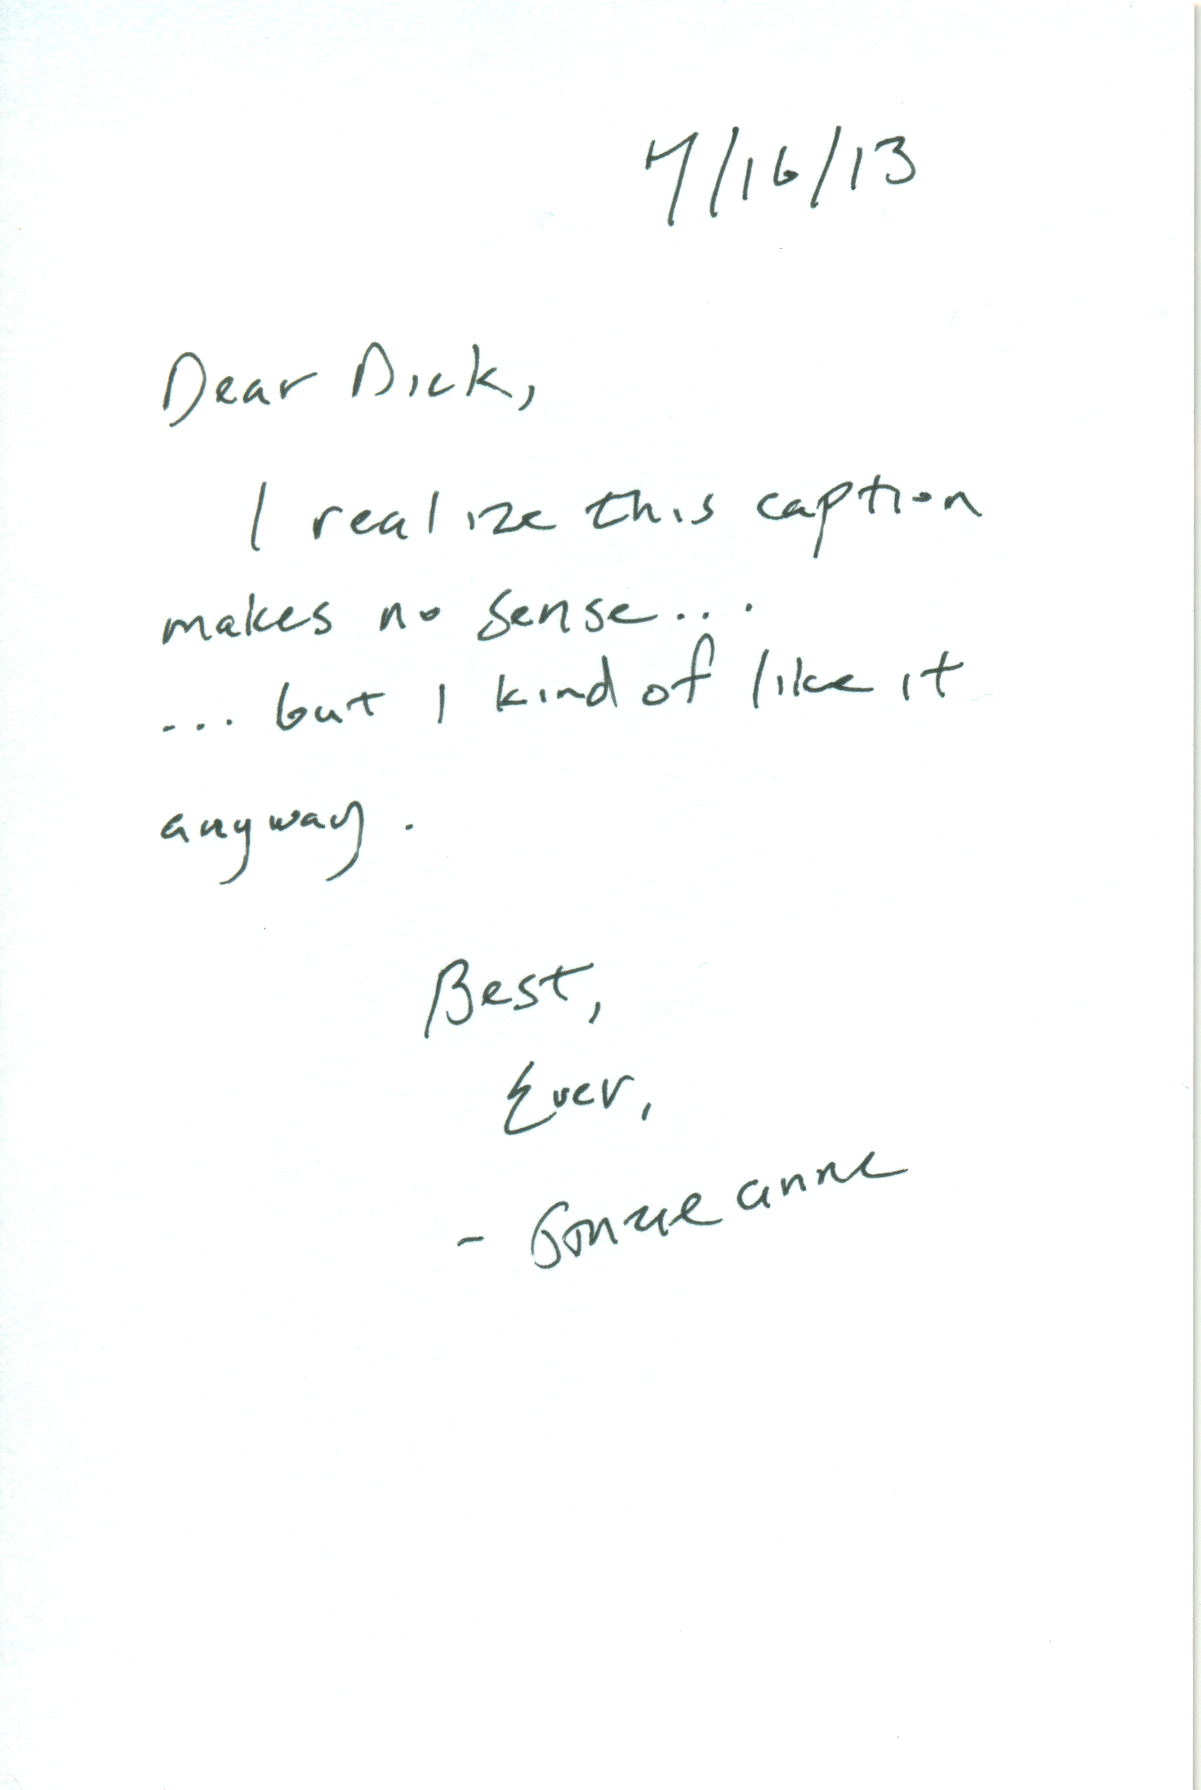 7/16/13
Dear Dick,
I realize this caption
makes no sense...
... but I kind of like it
anyway.
Best,
Ever,
- anne